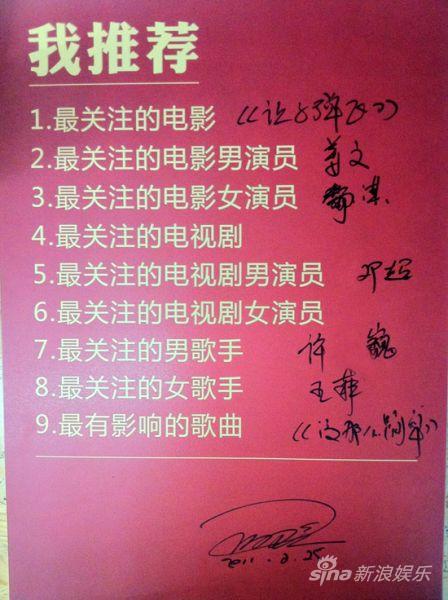 我推荐
1.最关注的电影 《让子弹飞》
2.最关注的电影男演员 姜文
3.最关注的电影女演员
4.最关注的电视剧
5.最关注的电视剧男演员 邓超
6.最关注的电视剧女演员
7.最关注的男歌手 许巍
8.最关注的女歌手 王菲
9.最有影响的歌曲 《没那么简单》
2011.2.25
sina新浪娱乐